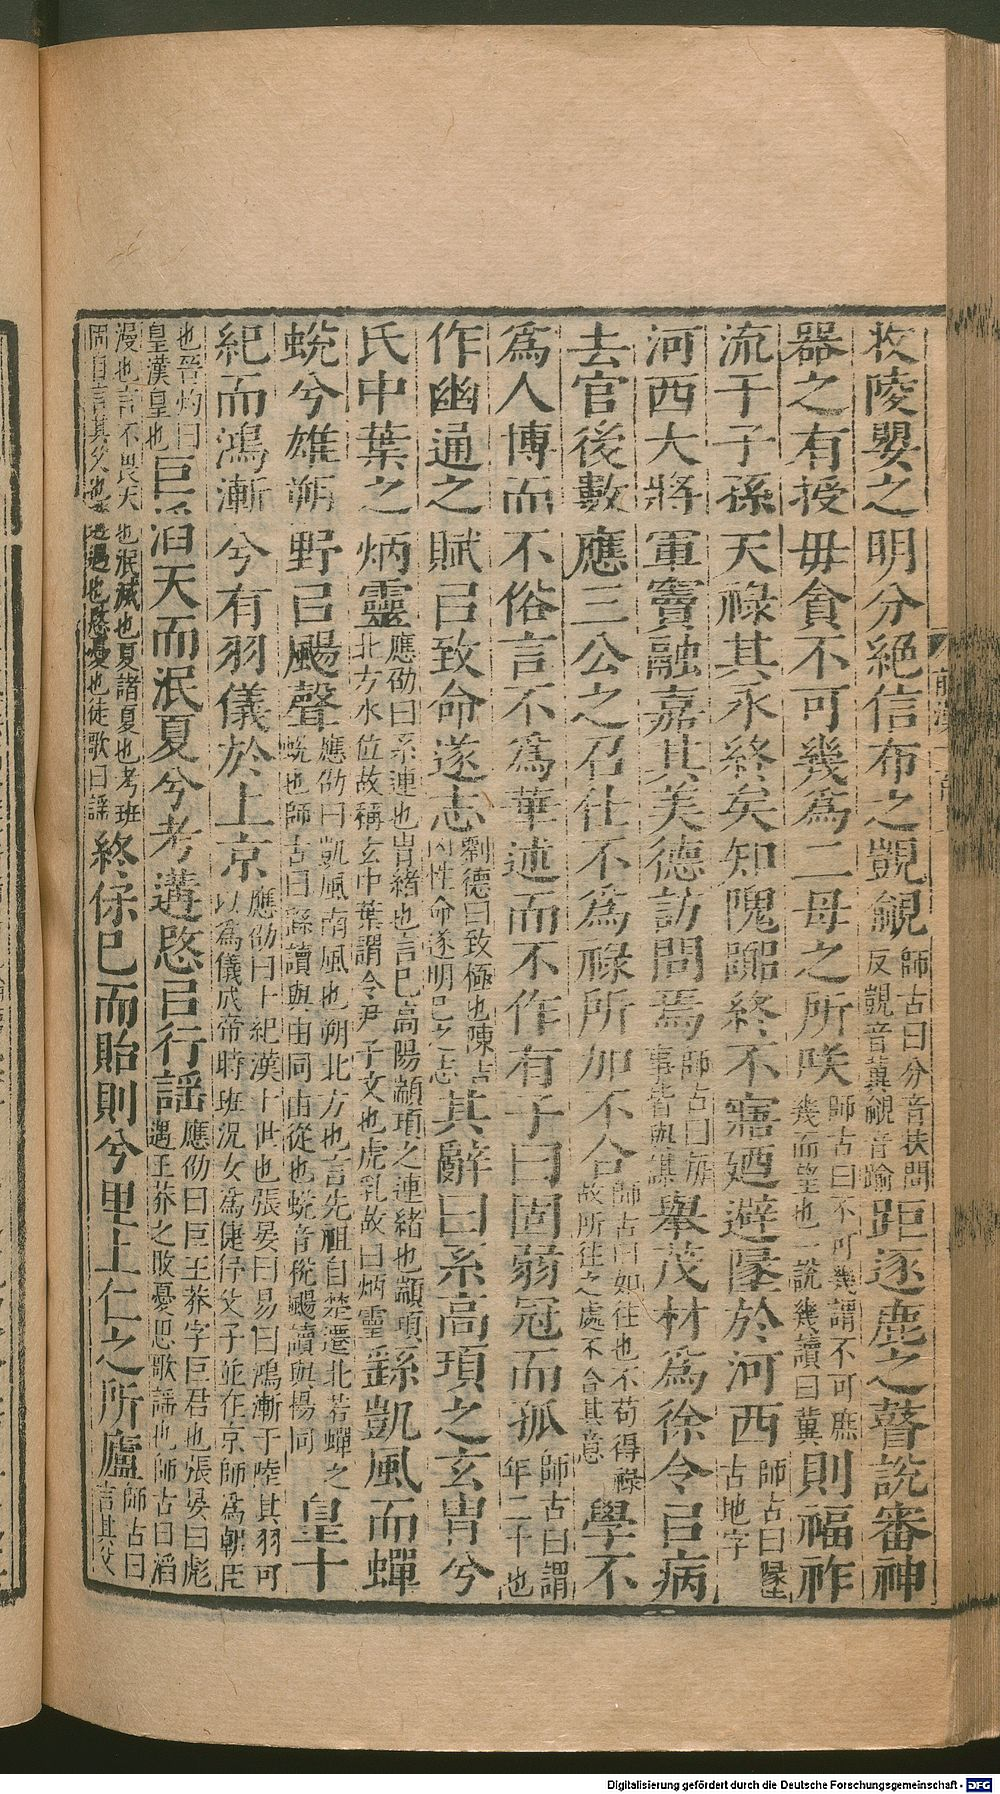 收陵嬰之明分絕信布之覬覦師古曰分音扶問反覬音冀覦音踰距逐鹿之瞽說審神
器之有授毋貪不可幾爲二母之所咲師古曰不可幾謂不可庶幾而望也一說幾讀曰冀則福祚
流于子孫天祿其永終矣知隗囂終不寤廼避墬於河西師古曰墬古地字
河西大將軍竇融嘉其美德訪問焉師古曰每事皆與謀舉茂材爲徐令㠯病
去官後數應三公之召仕不爲祿所如不合師古曰如往也不苟得祿故所往之處不合其意學不
爲人博而不俗言不爲華述而不作有子曰固弱冠而孤師古曰謂年二十也
作幽通之賦㠯致命遂志劉德曰致極也陳吉凶性命遂明己之志其辭曰系高頊之玄胄兮
氏中葉之炳靈應劭曰系連也胄緒也言己高陽顓頊之連緒也顓頊北方水位故稱玄中葉謂令尹子文也虎乳故曰炳靈繇凱風而蟬
蛻兮雄朔野㠯颺聲應劭曰凱風南風也朔北方也言先祖自楚遷北若蟬之蛻也師古曰繇讀與由同由從也蛻音稅颺讀與揚同皇十
紀而鴻漸兮有羽儀於上京應劭曰十紀漢十世也張晏曰易曰鴻漸于陸其羽可以爲儀成帝時班況女爲倢伃父子並在京師爲朝臣
也晉灼曰皇漢皇也巨滔天而泯夏兮考遘愍㠯行謠應劭曰巨王莽字巨君也張晏曰彪遇王莽之敗憂思歌謠也師古曰滔
漫也言不畏天也泯滅也夏諸夏也考班固自言其父也遘遇也愍憂也徒歌曰謠終保己而貽則兮里上仁之所廬師古曰言其父
Digitalisierung gefördert durch die Deutsche Forschungsgemeinschaft - DFG